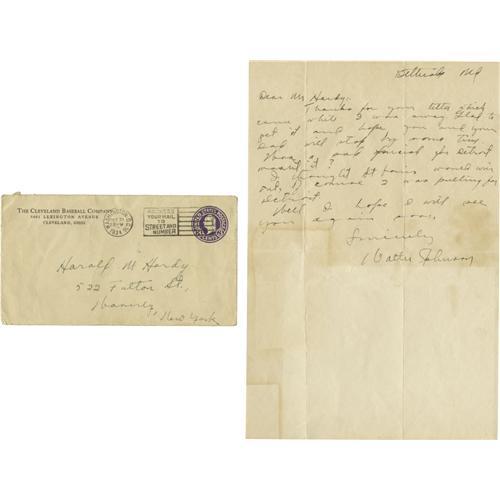 THE CLEVELAND BASEBALL COMPANY
LEXINGTON AVENUE
CLEVELAND, OHIO
WASHINGTON
1934
ADDRESS
YOUR MAIL
TO
STREET AND
NUMBER
Harold M Hardy
522 Fulton St,
Waverly,
New York
Md
Dear Mr Hardy:
Thanks for your letter which
came while I was away. Glad to
get it and hope you and your
Dad will stop by some time
was it a sad for Detroit
wasn't it?
I thought St Louis would win
out, of course I was pulling for
Detroit.
Well I hope I will see
you again soon.
Sincerely
Walter Johnson